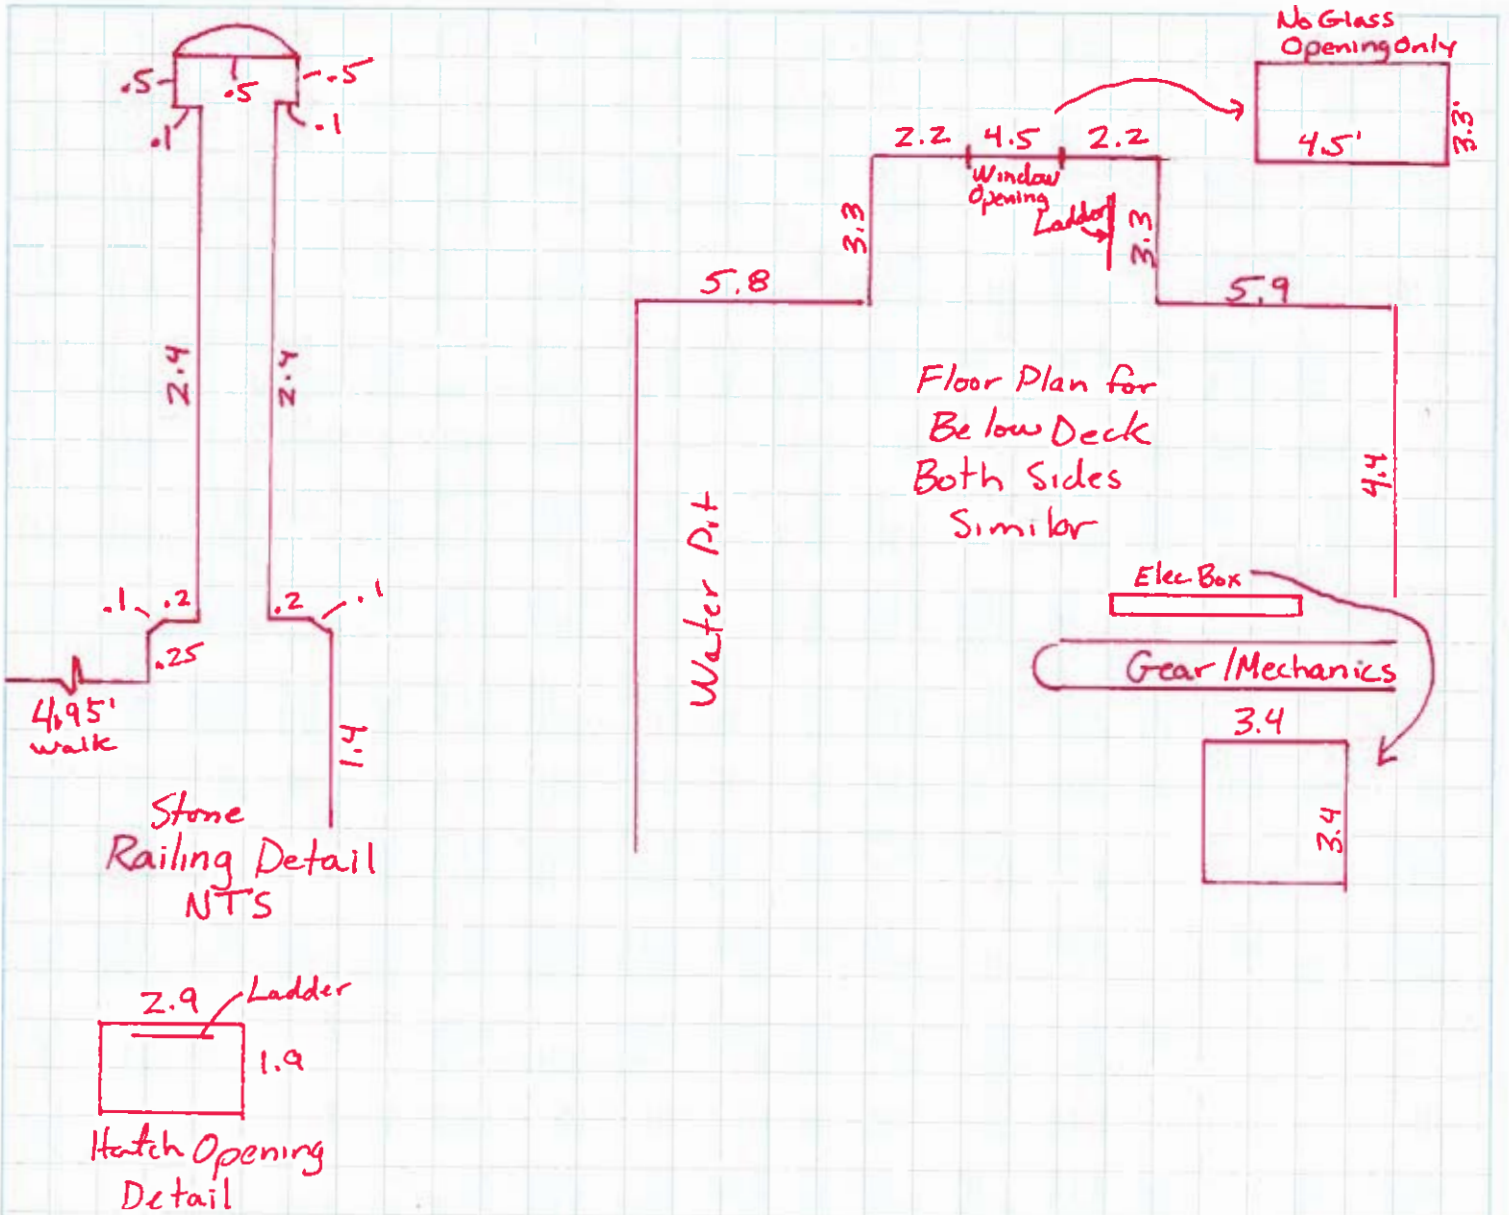 .5
.5
.5
.1
.1
2.4
2.4
.1
.2
.2
.1
.25
4.95'
walk
1.4
Stone
Railing Detail
NTS
2.9
Ladder
1.9
Hatch Opening
Detail
No Glass
Opening Only
4.5'
3.3'
2.2
4.5
2.2
Window
Opening
Ladder
3.3
3.3
5.8
5.9
Floor Plan for
Below Deck
Both Sides
Similar
4.4
Water Pit
Elec Box
Gear/Mechanics
3.4
3.4